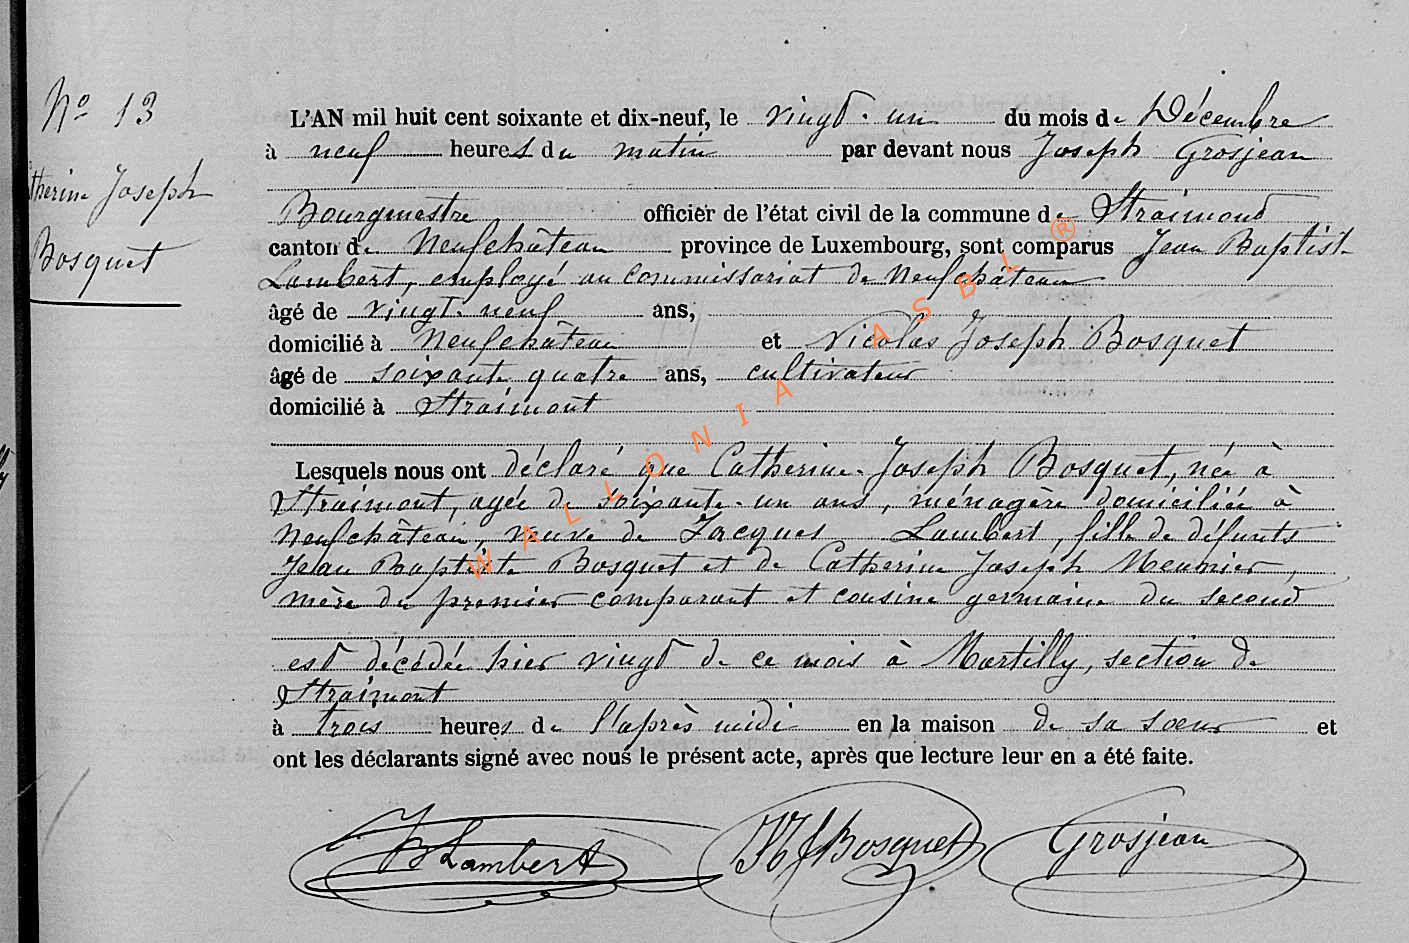 N° 13
therine Joseph
Bosquet
L'AN mil huit cent soixante et dix-neuf, le vingt-un du mois de Décembre
à neuf heures du matin par devant nous Joseph Grosjean
Bourgmestre officier de l'état civil de la commune de Straimont
canton de Neufchâteau province de Luxembourg, sont comparus Jean Baptist
Lambert, employé au commissariat de Neufchâteau
âgé de vingt-neuf ans,
domicilié à Neufchâteau et Nicolas Joseph Bosquet
âgé de soixante quatre ans, cultivateur
domicilié à Straimont
Lesquels nous ont déclaré que Catherine-Joseph Bosquet, née à
Straimont, agée de soixante-un ans, ménagère domiciliée à
Neufchâteau, veuve de Jacques Lambert, fille de défunts
Jean Baptiste Bosquet et de Catherine Joseph Meunier,
mère du premier comparant et cousine germaine du second
est décédée hier vingt de ce mois à Martilly, section de
Straimont
à trois heures de l'après midi en la maison de sa sœur et
ont les déclarants signé avec nous le présent acte, après que lecture leur en a été faite.
JB Lambert NJ Bosquet Grosjean
WALLONIA ASBL ®